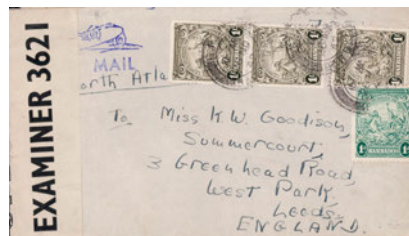 EXAMINER 3621
MAIL
orth Atla
To Miss K.W. Goodison,
Summercourt,
3 Greenhead Road,
West Park,
Leeds.
ENGLAND.
BARBADOS